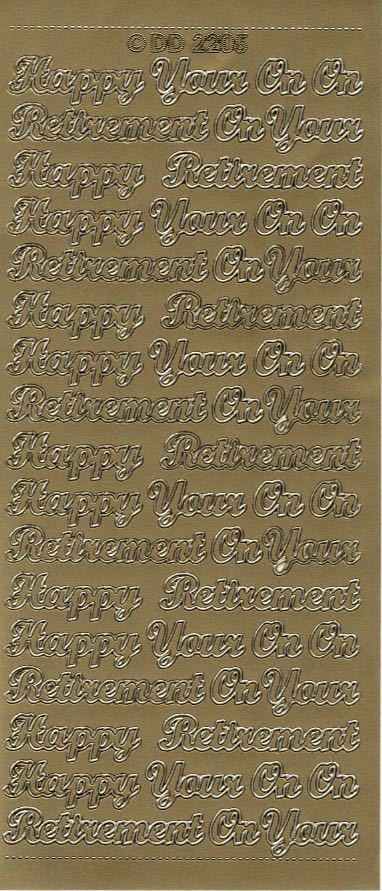 © DD 2205
Happy Your On On
Retirement On Your
Happy Retirement
Happy Your On On
Retirement On Your
Happy Retirement
Happy Your On On
Retirement On Your
Happy Retirement
Happy Your On On
Retirement On Your
Happy Retirement
Happy Your On On
Retirement On Your
Happy Retirement
Happy Your On On
Retirement On Your